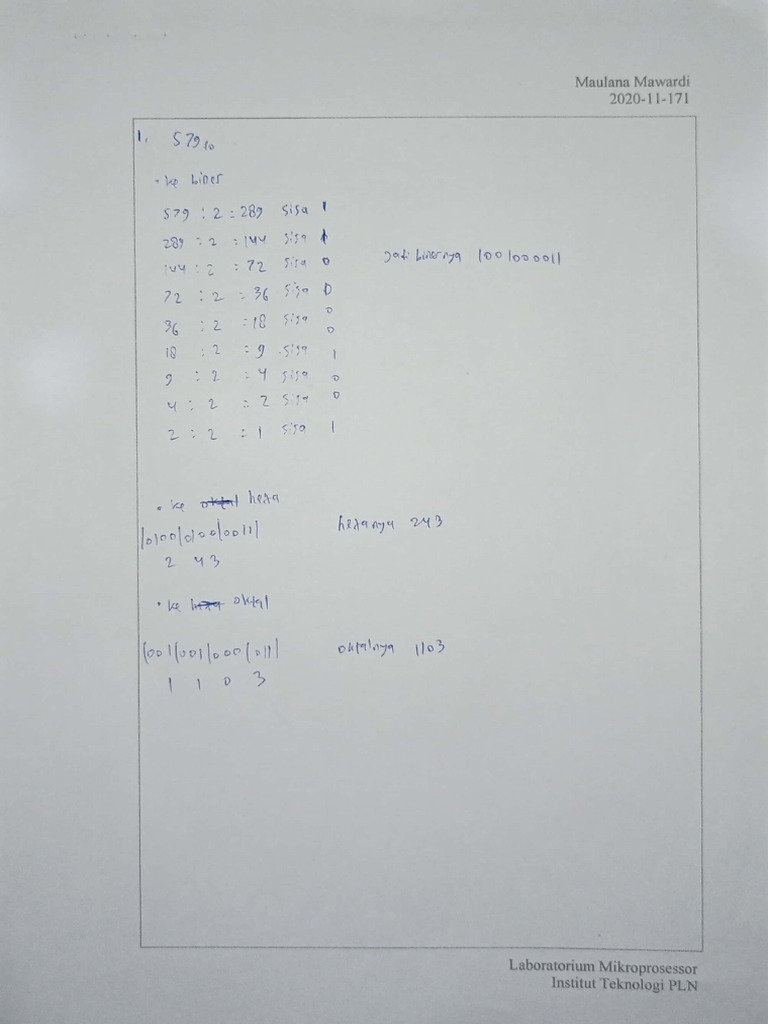 Maulana Mawardi
2020-11-171
1. 579₁₀
• ke biner
579 : 2 = 289 sisa 1
289 : 2 = 144 sisa 1
144 : 2 = 72 sisa 0
72 : 2 = 36 sisa 0
36 : 2 = 18 sisa 0
0
18 : 2 = 9 sisa
9 : 2 = 4 sisa 1
4 : 2 = 2 sisa 0
0
2 : 2 = 1 sisa 1
Jadi binernya 1001000011
• ke oktal hexa
|0100|0100|0011|
2 4 3
hexanya 243
• ke hexa oktal
|001|001|000|011|
1 1 0 3
oktalnya 1103
Laboratorium Mikroprosessor
Institut Teknologi PLN